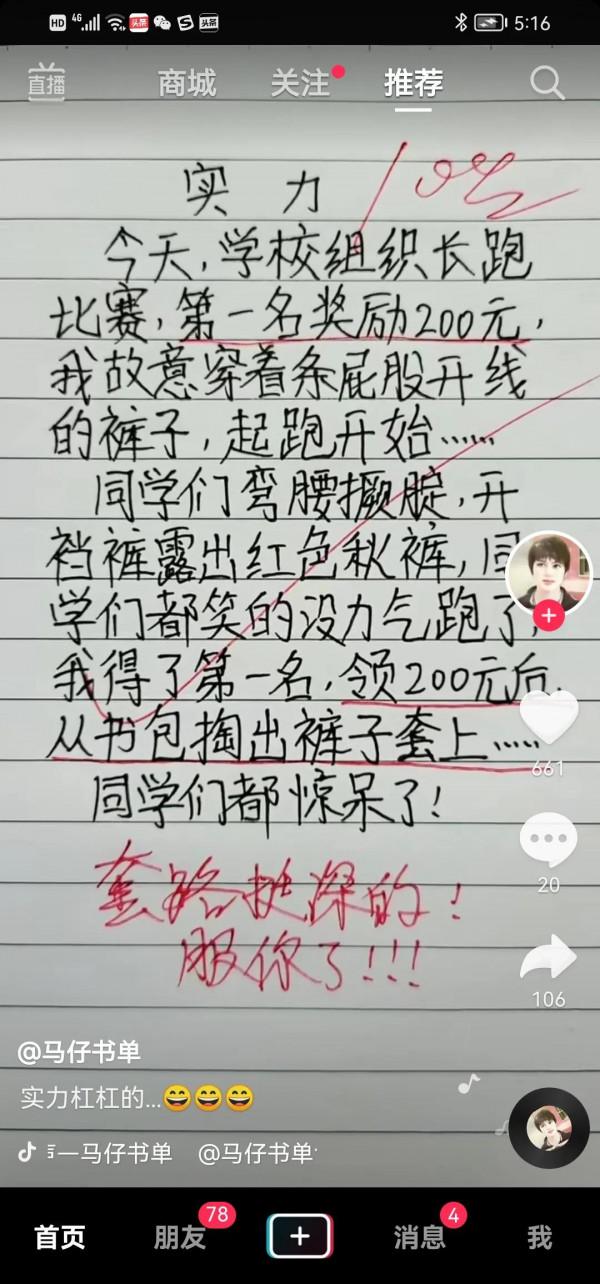 HD 4G 头条 S 头条 5:16
直播 商城 关注 推荐
实 力
今天,学校组织长跑
比赛,第一名奖励200元,
我故意穿着条屁股开线
的裤子,起跑开始……
同学们弯腰撅腚,开
裆裤露出红色秋裤,同
学们都笑的没力气跑了,
我得了第一名,领200元后,
从书包掏出裤子套上……
同学们都惊呆了!
套路挺深的!
服你了!!!
661
20
106
@马仔书单
实力杠杠的...😄😄😄
一马仔书单 @马仔书单
首页 朋友 78 消息 4 我